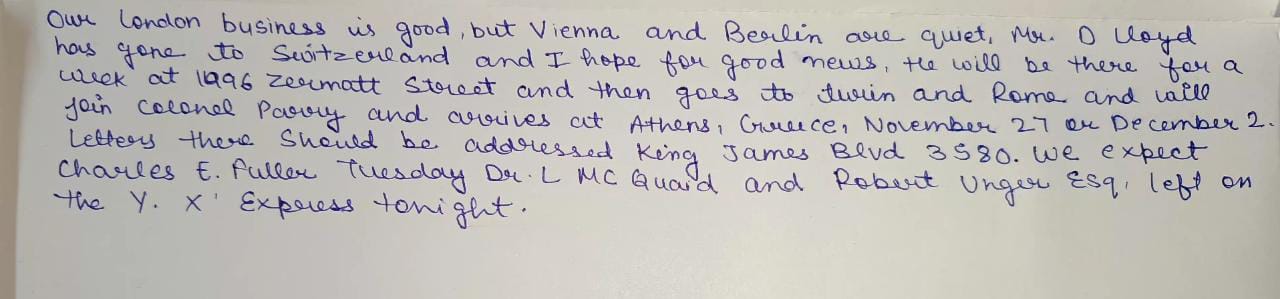 Our London business is good, but Vienna and Berlin are quiet, Mr. D Lloyd
has gone to Switzerland and I hope for good news, He will be there for a
week at 1996 Zermatt Street and then goes to turin and Rome and will
join Colonel Parry and arrives at Athens, Greece, November 27 or December 2.
Letters there Should be addressed King James Blvd 3580. We expect
Charles E. Fuller Tuesday Dr. L MC Quaid and Robert Unger ESq, left on
the Y. X' Express tonight.